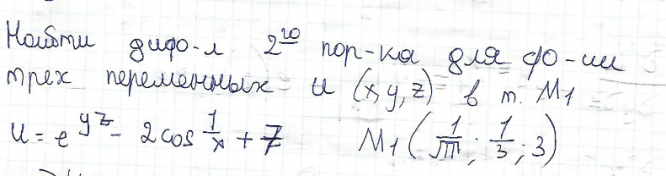 Найти дифо-л 2го пор-ка для фо-ии
трех переменных u (x y, z) в т. M1
u = e^yz - 2cos 1/x + 7 M1 (1/√π; 1/3; 3)